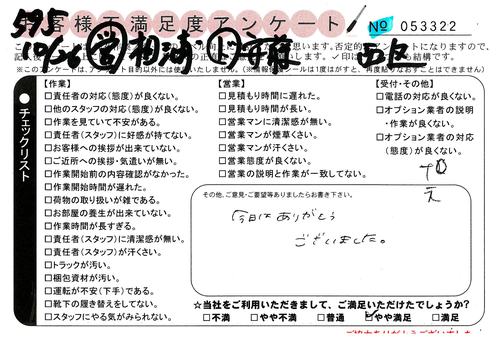 お客様不満足度アンケート
№ 053322
595
10/26 営 相浦 ト 斉藤 西区
※このアンケートは、アンケート目的以外には使いません。
チェックリスト
【作業】
□責任者の対応(態度)が良くない。
□他のスタッフの対応(態度)が良くない。
□作業を見ていて不安がある。
□責任者(スタッフ)に好感が持てない。
□お客様への挨拶が出来ていない。
□ご近所への挨拶・気遣いが無い。
□作業開始前の内容確認がなかった。
□作業開始時間が遅れた。
□荷物の取り扱いが雑である。
□お部屋の養生が出来ていない。
□作業時間が長すぎる。
□責任者(スタッフ)に清潔感が無い。
□責任者(スタッフ)が汗くさい。
□トラックが汚い。
□梱包資材が汚い。
□運転が不安(下手)である。
□靴下の履き替えをしてない。
□スタッフにやる気がみられない。
【営業】
□見積もり時間に遅れた。
□見積もり時間が長い。
□営業マンに清潔感が無い。
□営業マンが煙草くさい。
□営業マンが汗くさい。
□営業態度が良くない。
□営業の説明と作業が一致してない。
【受付・その他】
□電話の対応が良くない。
□オプション業者の説明
・作業が良くない。
□オプション業者の対応
(態度)が良くない。
その他、ご意見・ご要望等ありましたらお書き下さい。
今日は ありがとう
ございました。
☆当社をご利用いただきまして、ご満足いただけたでしょうか?
□不満 □やや不満 □普通 ☑やや満足 □満足